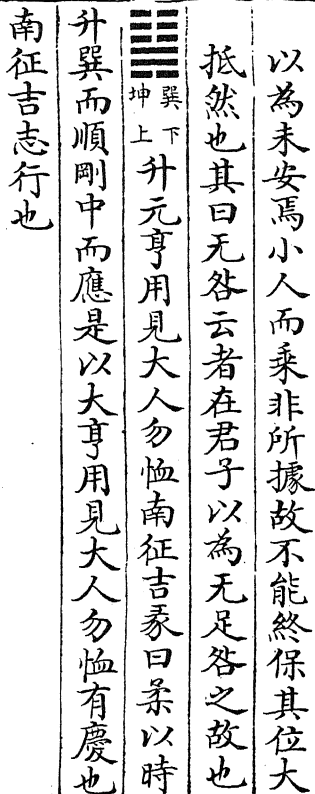 以為未安焉小人而乘非所據故不能終保其位大
抵然也其曰无咎云者在君子以為无足咎之故也
䷭巽下坤上升元亨用見大人勿恤南征吉彖曰柔以時
升巽而順剛中而應是以大亨用見大人勿恤有慶也
南征吉志行也